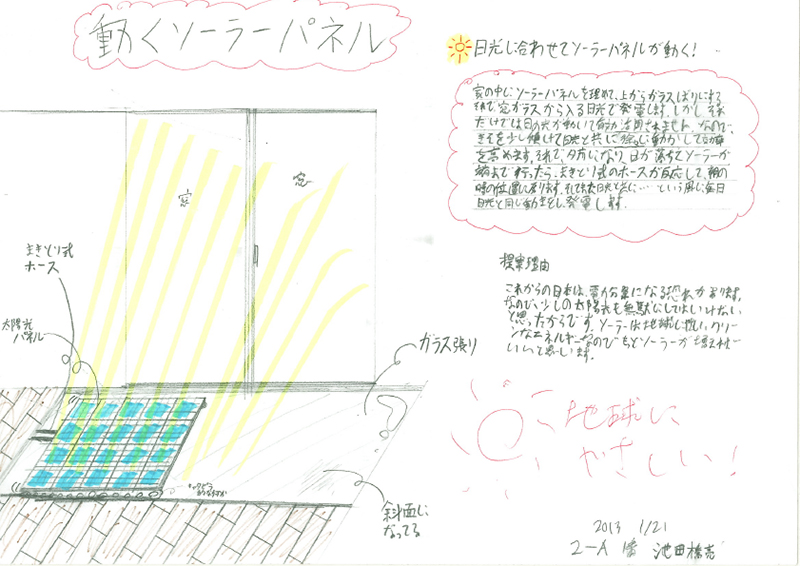 動くソーラーパネル
日光に合わせてソーラーパネルが動く!
家の中にソーラーパネルを埋めて、上からガラスばりにする
それで窓ガラスから入る日光で発電します。しかし、それ
だけでは日の光が動いて
を少し傾けて日光と共に徐々に動かして効率
を高めます。それで、夕方になり、日が落ちてソーラーが
端まで行ったら、まきとり式のホースが反応して、朝の
時の位置に戻ります。そしてまた日光と共に…という風に毎日
日光と同じ動きをし、発電します。
窓
窓
まきとり式
ホース
太陽光
パネル
ガラス張り
キャタピラ
斜面に
なってる
提案理由
これからの日本は、電力不足になる恐れがあります。
なので、少しの太陽光も無駄にしてはいけない
と思ったからです。ソーラーは地球に優しい、クリー
ンなエネルギーなのでもっとソーラーが増えれば
いいと思います。
地球に
やさしい!
2013 1/21
2-A
池田